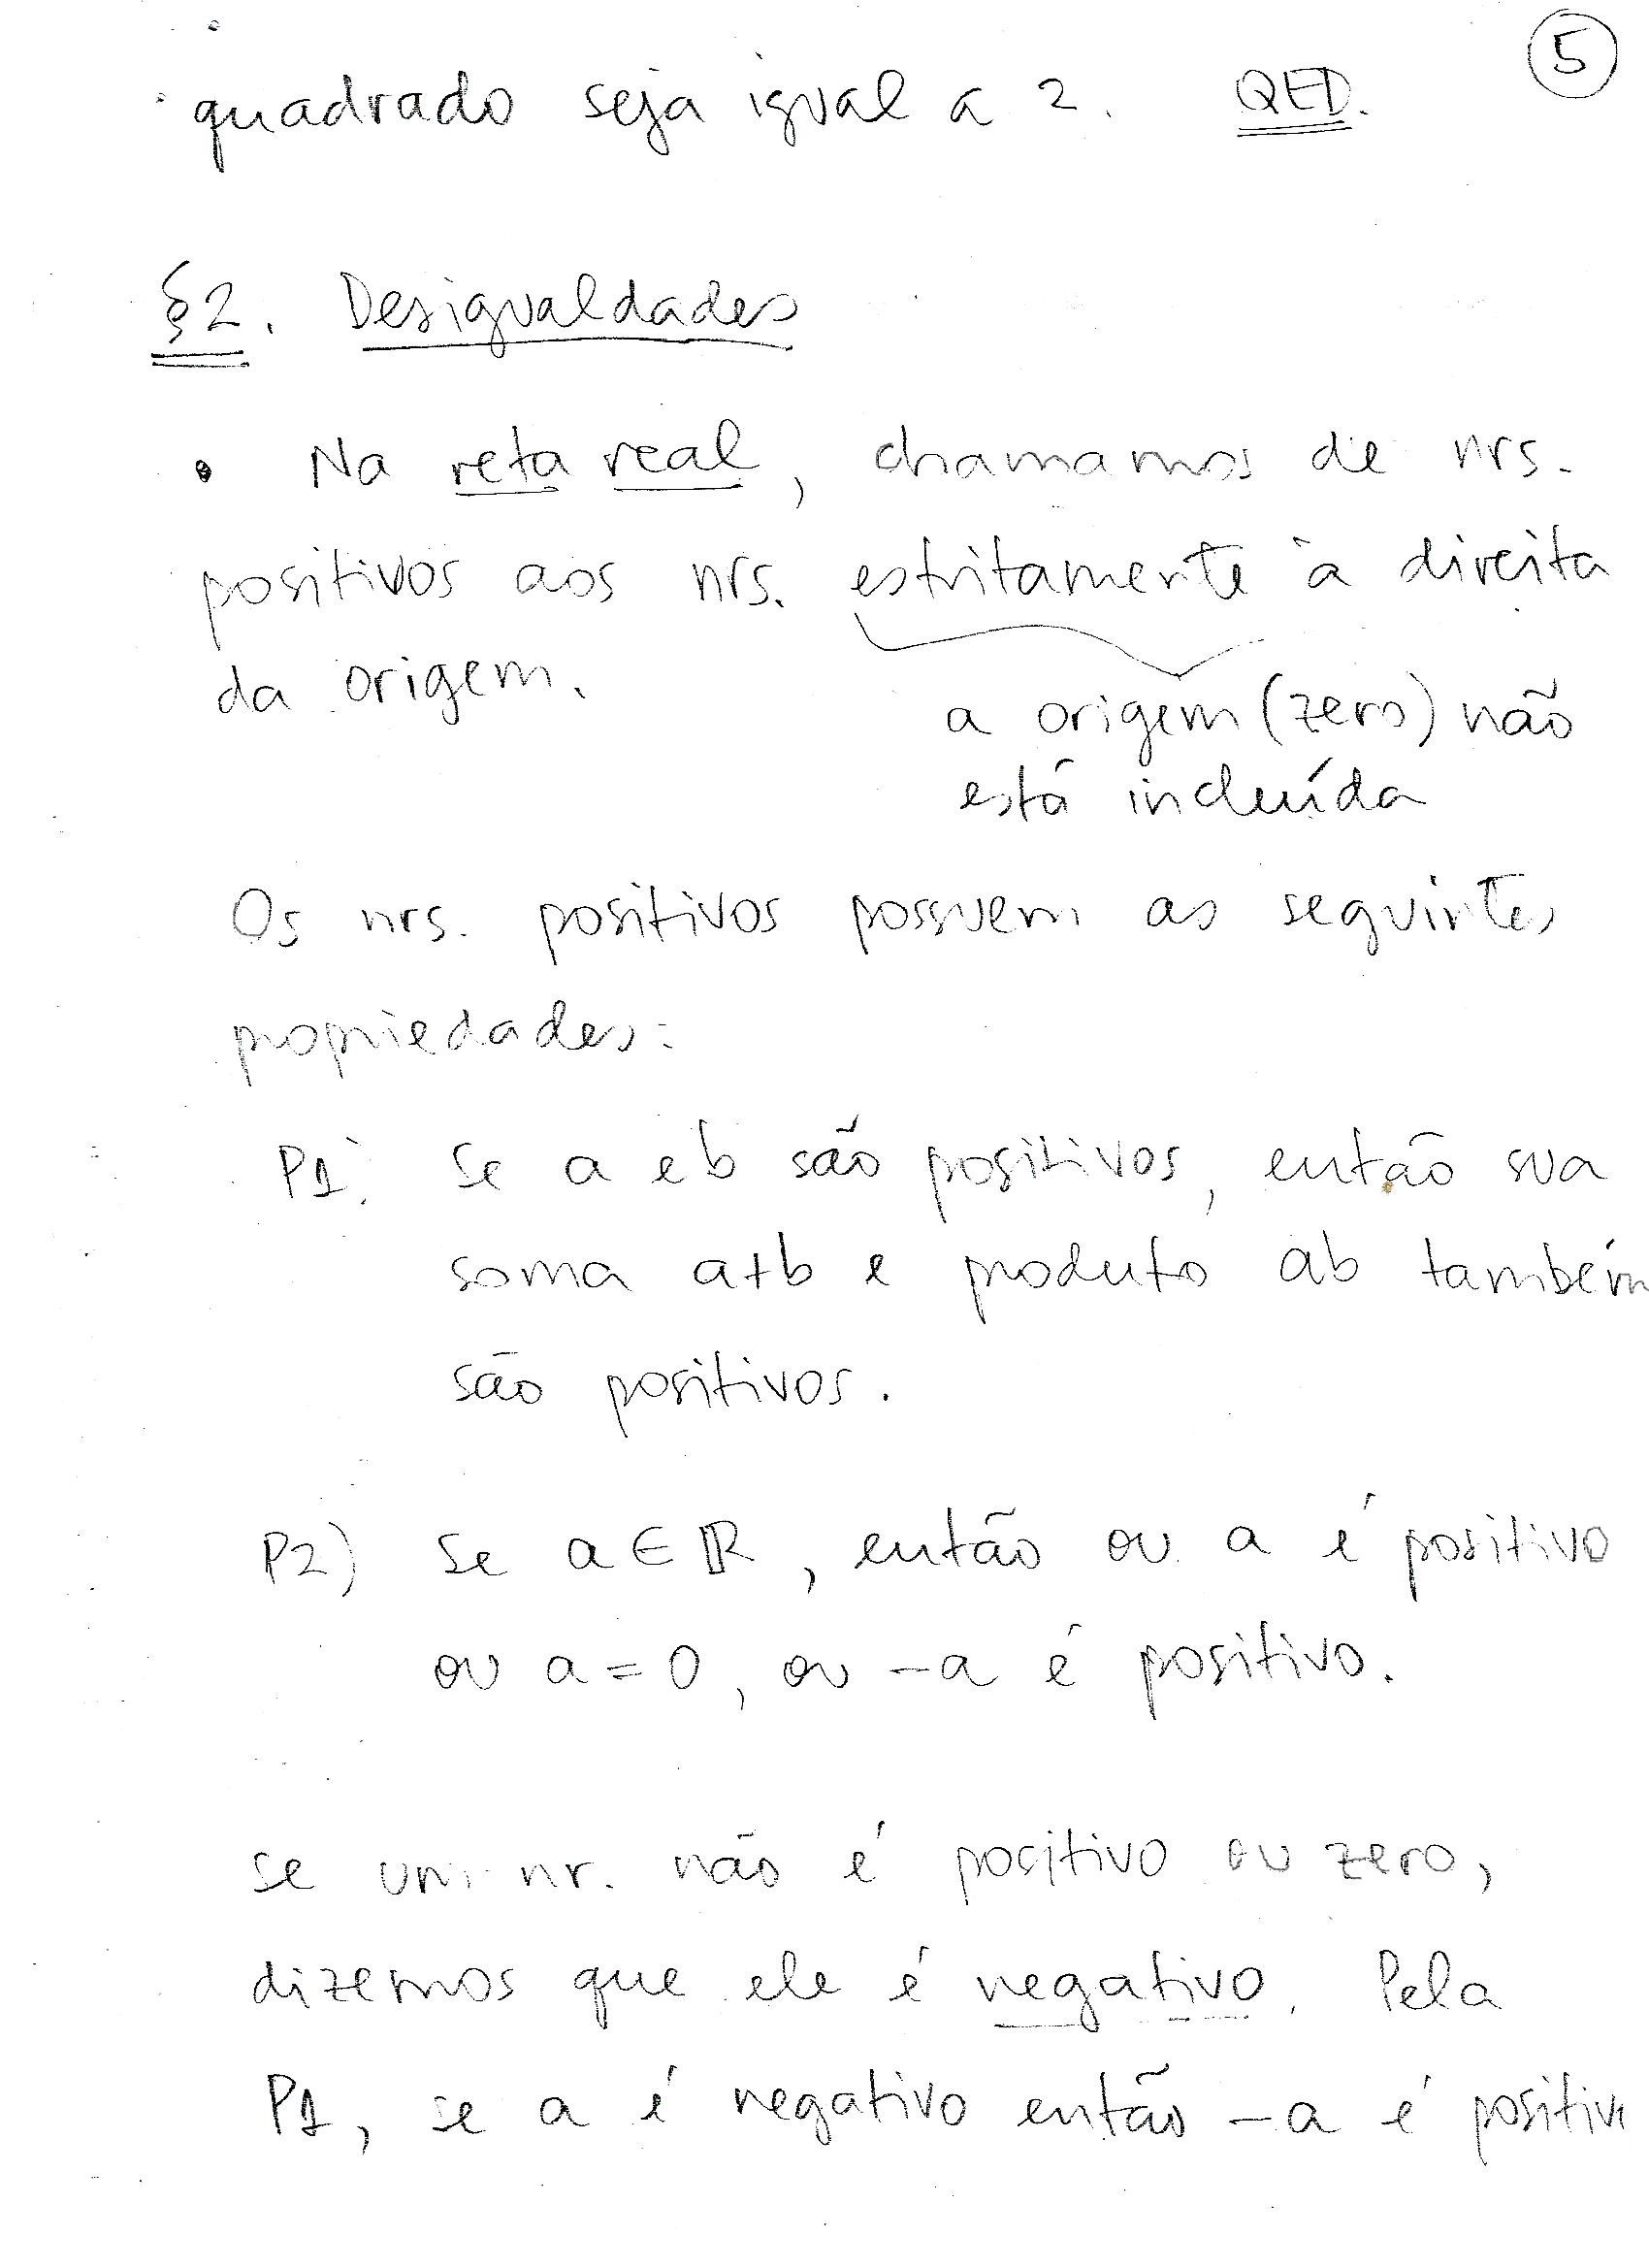 5
quadrado seja igual a 2. QED.
§2. Desigualdades
• Na reta real, chamamos de nrs.
positivos aos nrs. estritamente à direita
da origem.
a origem (zero) não
está incluída
Os nrs. positivos possuem as seguintes
propriedades:
P1: Se a e b são positivos, então sua
soma a+b e produto ab também
são positivos.
P2) Se a ∈ ℝ, então ou a é positivo
ou a = 0, ou -a é positivo.
Se um nr. não é positivo ou zero,
dizemos que ele é negativo. Pela
P1, se a é negativo então -a é positiv